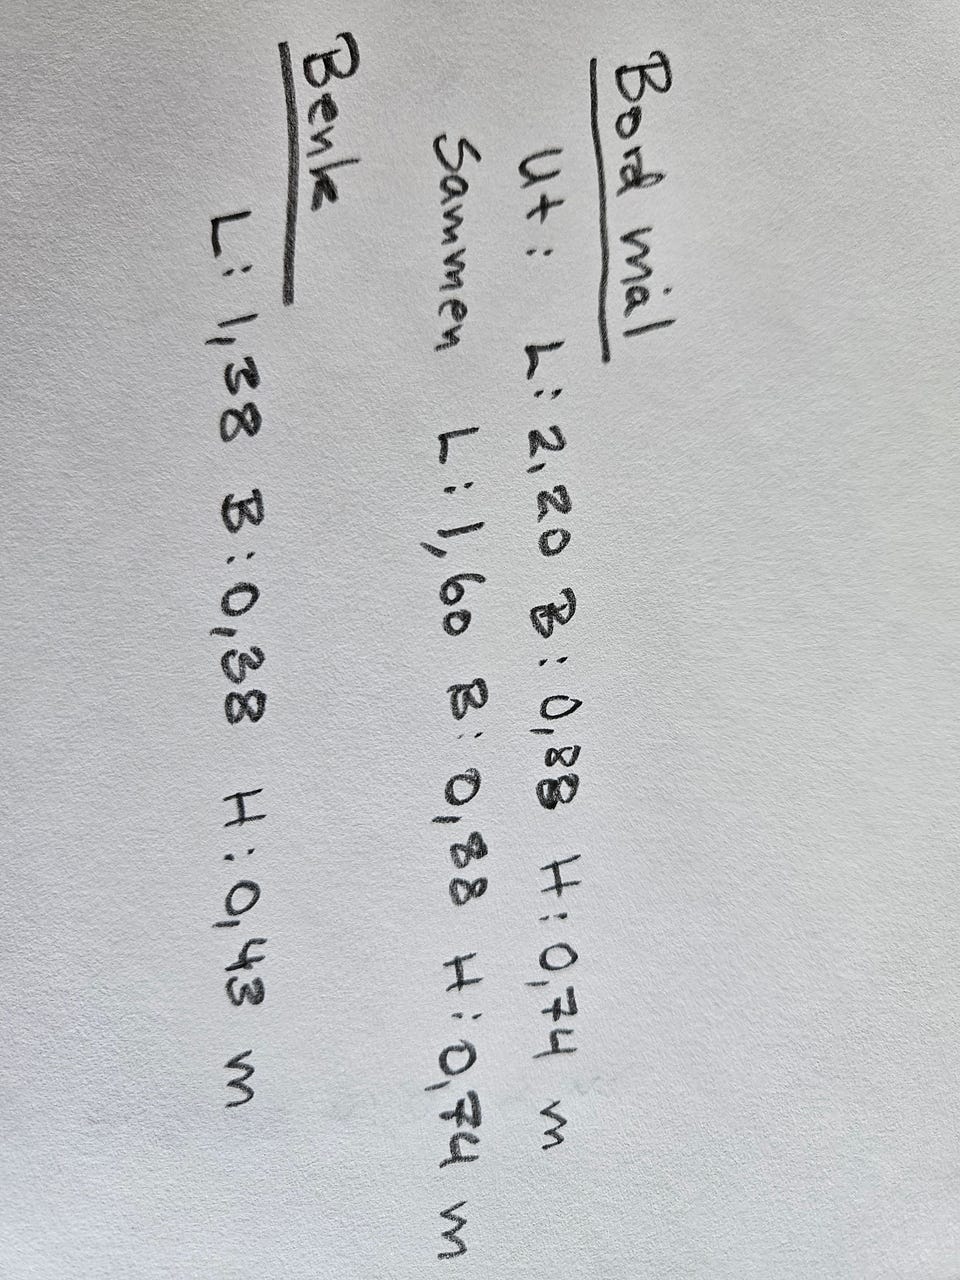 Bord mål
Ut: L: 2,20 B: 0,88 H: 0,74 m
Sammen L: 1,60 B: 0,88 H: 0,74 m
Benk
L: 1,38 B: 0,38 H: 0,43 m